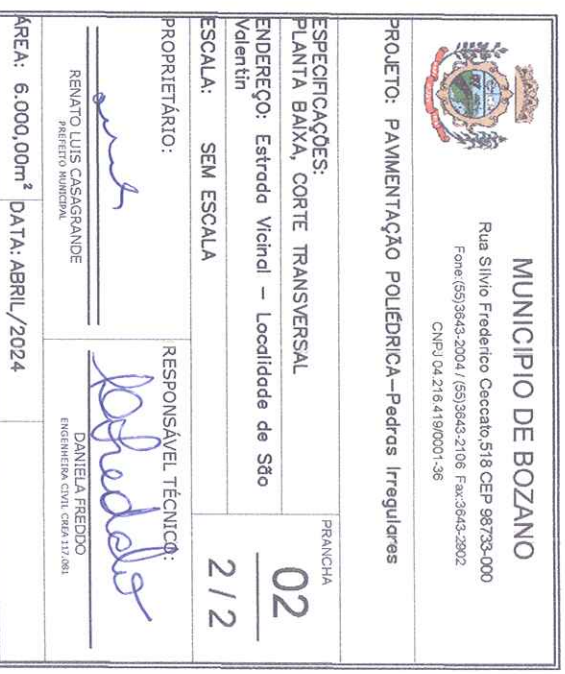 MUNICIPIO DE BOZANO
Rua Silvio Frederico Ceccato,518 CEP 98733-000
Fone:(55)3643-2004 / (55)3643-2106 Fax:3643-2902
CNPJ 04.216.419/0001-36
PROJETO: PAVIMENTAÇÃO POLIÉDRICA-Pedras Irregulares
ESPECIFICAÇÕES:
PLANTA BAIXA, CORTE TRANSVERSAL
ENDEREÇO: Estrada Vicinal - Localidade de São
Valentin
ESCALA: SEM ESCALA
PRANCHA
02
2/2
PROPRIETÁRIO:
RENATO LUIS CASAGRANDE
PREFEITO MUNICIPAL
RESPONSÁVEL TÉCNICO:
DANIELA FREDDO
ENGENHEIRA CIVIL CREA 117.081
ÁREA: 6.000,00m² DATA: ABRIL/2024